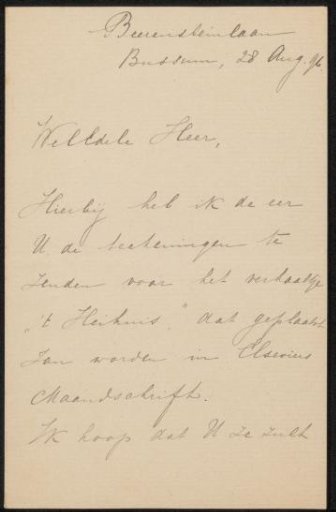 Beerensteinlaan
Bussum, 28 Aug. 96
WelEdele Heer,
Hierbij heb ik de eer
U de teekeningen te
zenden voor het verhaaltje
„'t Heihuis," dat geplaatst
zou worden in Elseviers
Maandschrift.
Ik hoop dat U ze zult